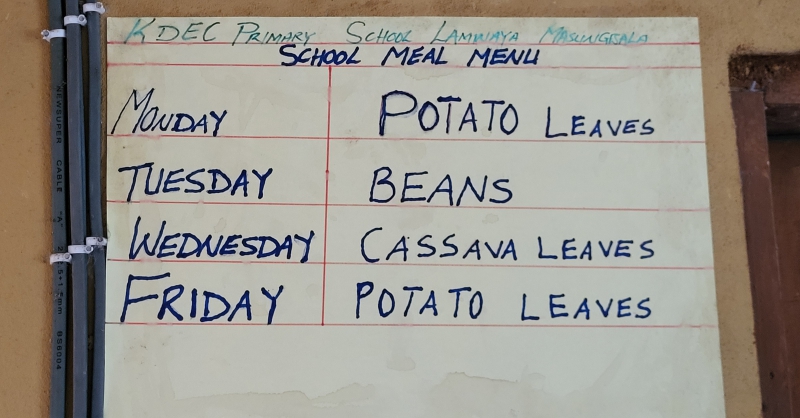 KDEC PRIMARY SCHOOL LAMWAYA
SCHOOL MEAL MENU
MONDAY POTATO LEAVES
TUESDAY BEANS
WEDNESDAY CASSAVA LEAVES
FRIDAY POTATO LEAVES
NEWSUPER CABLE "A"
BS6004